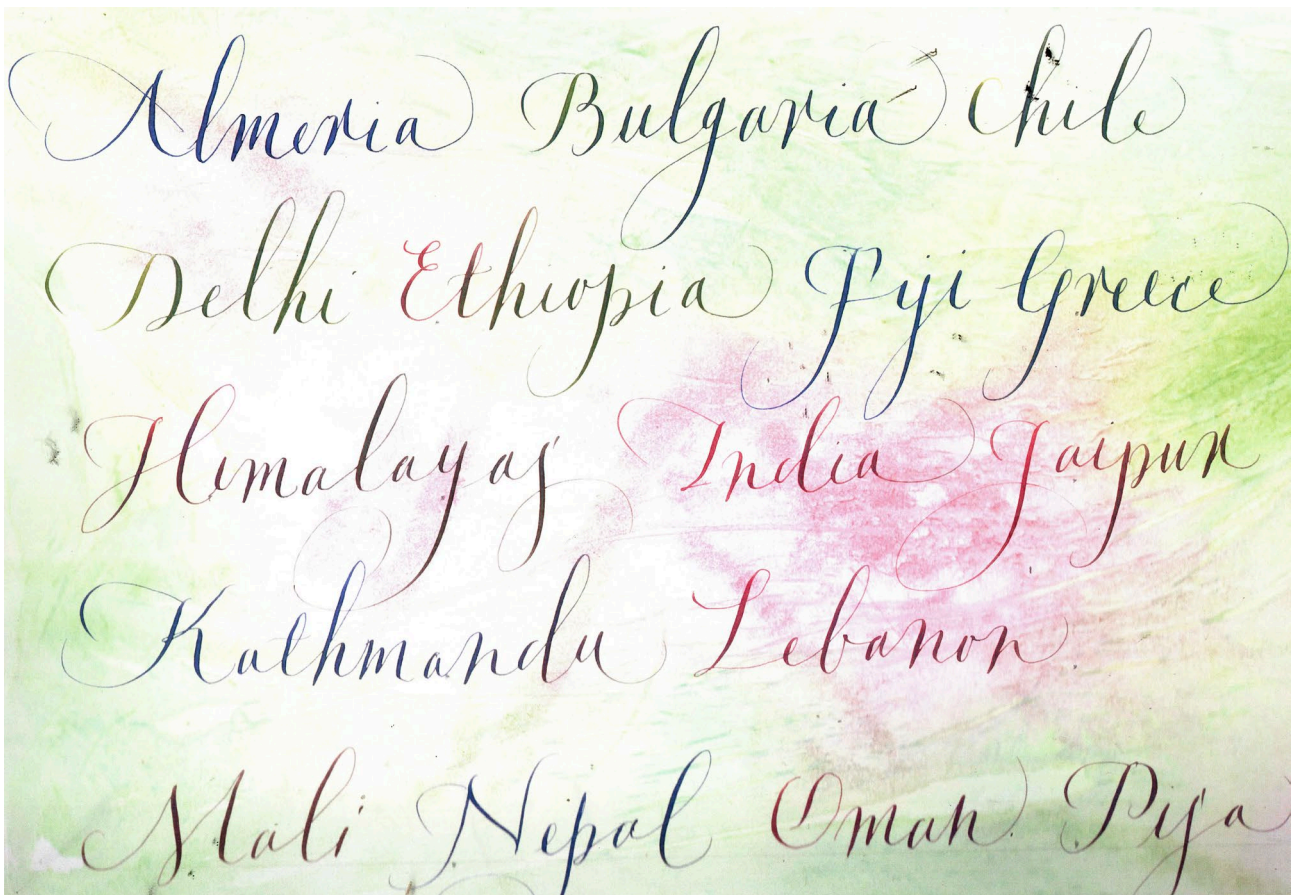 Almeria Bulgaria Chile
Delhi Ethiopia Fiji Greece
Himalayas India Jaipur
Kathmandu Lebanon
Mali Nepal Oman Pisa